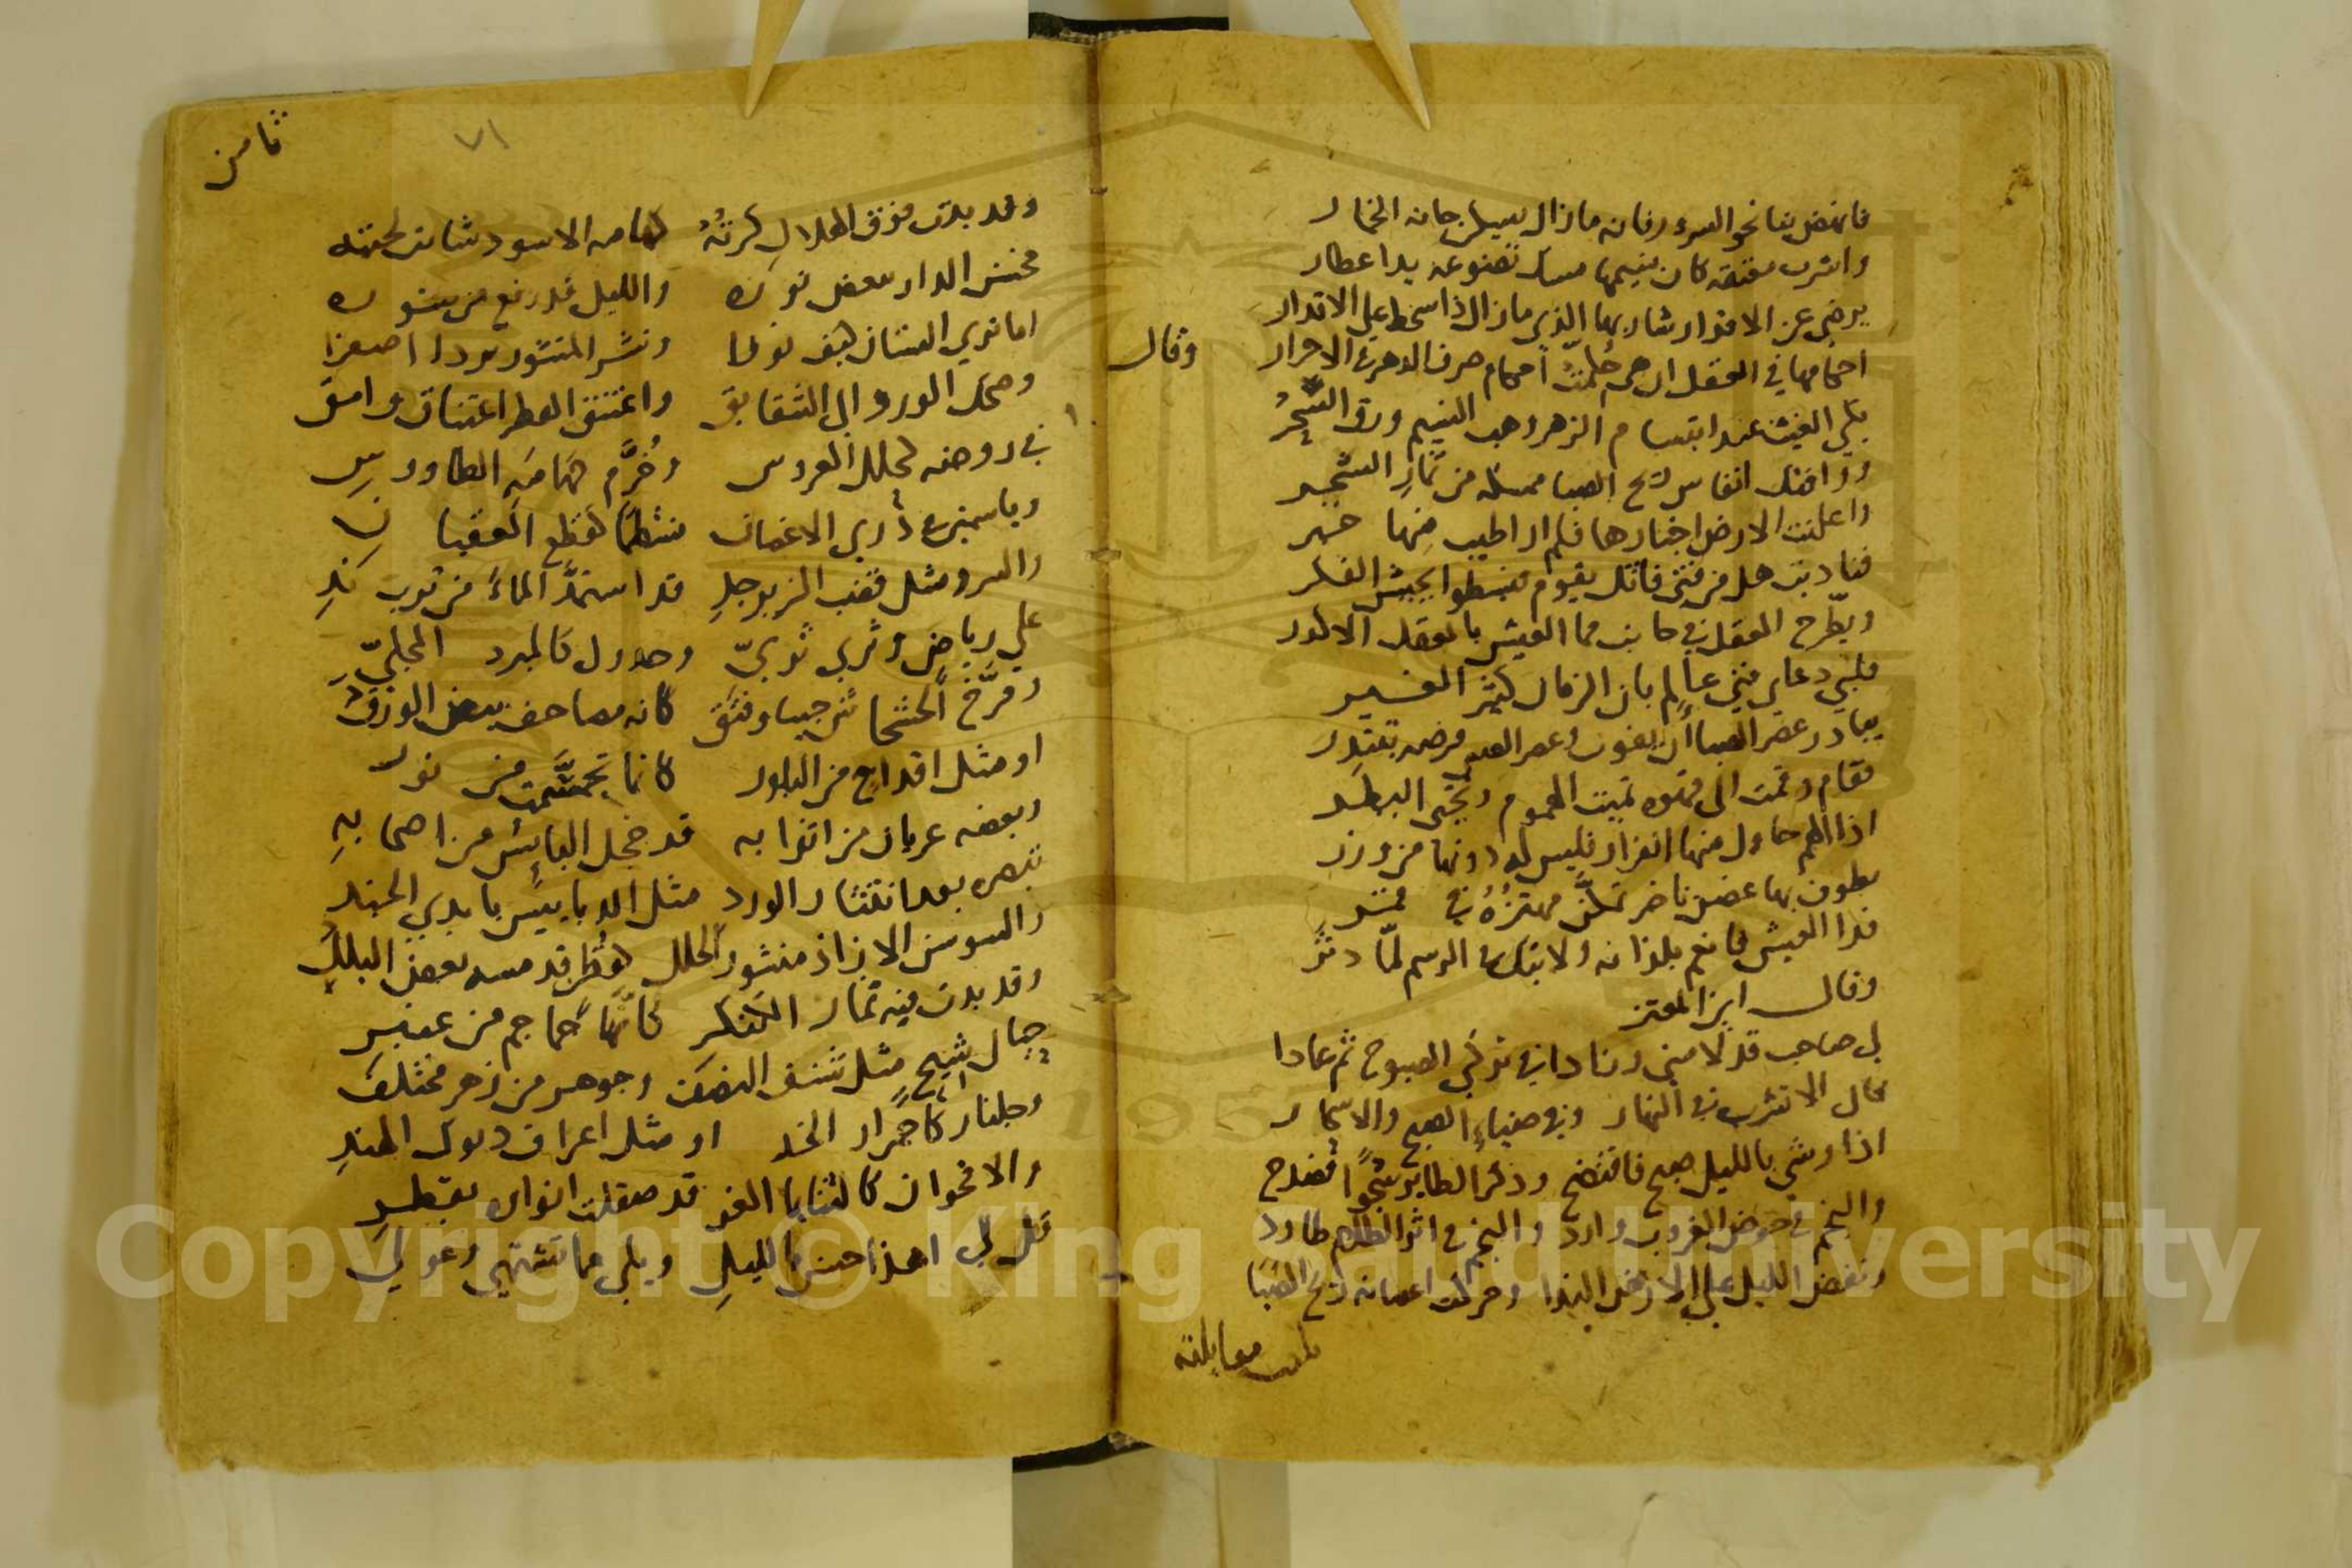 فانهض بنا نحو السرور فانه ما زال يسكن حانه الخمار
واشرب معتقه كان نسيمها مسك تضوعه يدا عطار
يرضي عن الاقدار شاربها الذي ما زال ذا سخط علي الاقدار
احكامها في العقل ان هي حكمت احكام صرف الدهر في الاحرار وقال
بكي الغيث عند ابتسام الزهر وهب النسيم ورق السحر
ووافتك انفاس ريح الصبا ممسكه من ثمار الشجر
واعلنت الارض اخبارها فلم ار اطيب منها خبر
فناديت هل من فتى فاتك يقوم
ويطرح العقل في جانب فما العيش بالعقل الا كدر
فلبي دعاي فتي عالم بان الزمان كثير الغير
يبادر عصر الصبا ان يفوت وعصر الصبي فرصه تبتدر
فقام وقمت الى قهوه تميت الهموم وتحيي البطر
اذا الهم حاول منها الفرار فليس له دونها من وزر
يطوف بها غصن ناضر تمكن مهتزه في
فذا العيش فانعم بلذاته ولا تبك في الرسم لما دثر
وقال ابن المعتز
لي صاحب قد لامني وزادا في تركي الصبوح ثم عادا
قال الا تشرب في النهار وفي ضياء الصبح والاسحار
اذا وشي بالليل صبح فافتضح وذكر الطاير شجوا فصدح
والنجم في حوض الغروب وارد والنجم في اثر الظلام طارد
ونفض الليل علي الارض الندا وحركت اغصانه ريح الصبا
بلغت مقابلة
ثامن
٧١
وقد بدت فوق الهلال كرته كهامه الاسود شابت لحيته
فخمش الدار ببعض نوره والليل قد رفع من ستوره
اما تري البستان كيف نورا ونشر المنثور بردا اصفرا
وضحك الورد الي الشقايق واعتنق القطر اعتناق وامق
في روضه كحلل العروس وخرم كهامه الطاووس
وياسمين في ذري الاغصان منتظما كقطع العقيان
والسرو مثل قضب الزبرجد قد استمد الماء من ترب ند
علي رياض وثري ثري وجدول كالمبرد المجلي
وفرخ الخشخاش جيبا وفتق كانه مصاحف بيض الورق
او مثل اقداح من البلور كانما تجسمت من نور
وبعضه عريان من اثوابه قد خجل اليابس من اصحابه
تبصره بعد انتثار الورد مثل الدبابيس بايدي الجند
والسوسن الازاذ منشور الحلل كقطن قد مسه بعض البلل
وقد بدت فيه ثمار الكنكر كانها جماجم من عنبر
حبال شيح مثل شيب النصف وجوهر من زهر مختلف
وجلنار كاحمرار الخد او مثل اعراف ديوك الهند
والاقحوان كالثنايا الغر قد صقلت انواره بقطر
قل لي اهذا حسن بالليل ويلي مما تشتهي وعولي